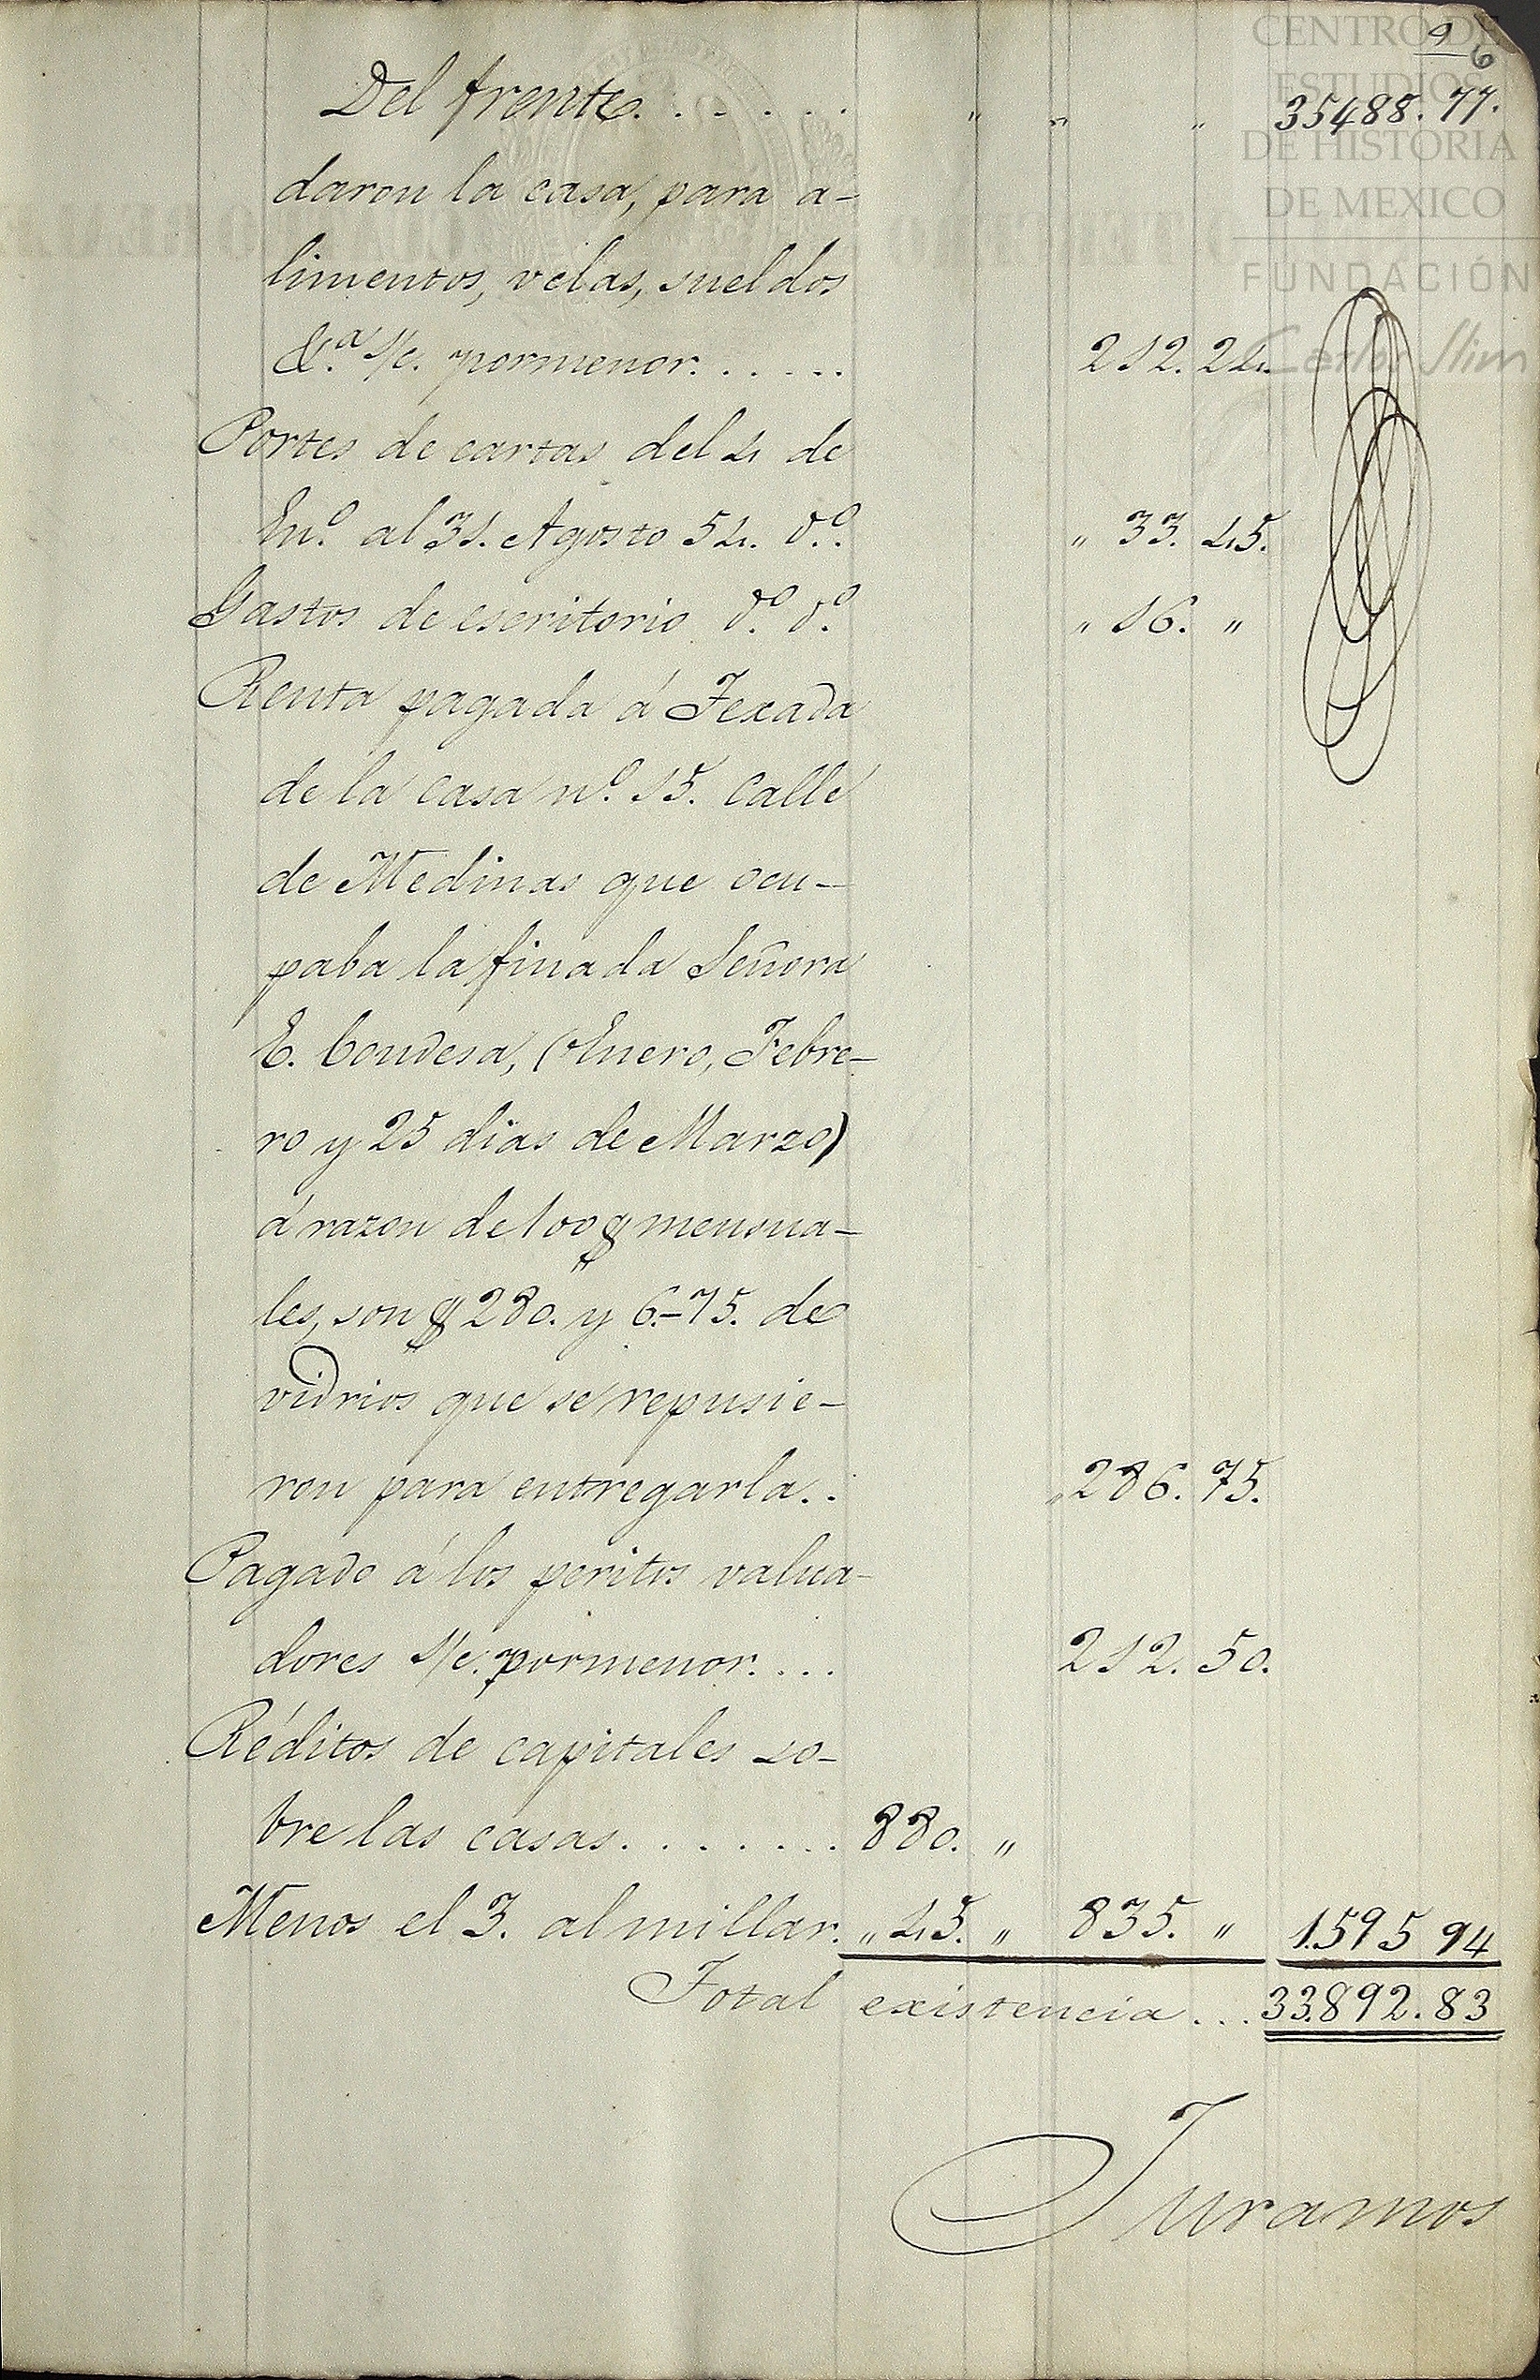 CENTRO DE
ESTUDIOS
DE HISTORIA
DE MEXICO
FUNDACIÓN
Carlos Slim
9
6
Del frente. . . . . . " " " 35488.77.
daron la casa, para a-
limentos, velas, sueldos
&.ª s/c. pormenor. . . . . . 212. 24.
Portes de cartas del 4 de
En.º al 31. Agosto 54. d.º. " 33. 45.
Gastos de escritorio d.º d.º " 16. "
Renta pagada á Texada
de la casa n.º 15. Calle
de Medinas que ocu-
paba la finada Señora
E. Condesa, (Enero, Febre-
ro y 25 dias de Marzo)
á razon de 100 $ mensua-
les, son $ 280. y 6.-75. de
vidrios que se repusie-
ron para entregarla. . " 286. 75.
Pagado á los peritos valua-
dores s/c. pormenor. . . . 212. 50.
Réditos de capitales so-
bre las casas. . . . . . . 880. "
Menos el 3. al millar. " 45. " 835. " 1.595 94
Total existencia . . . 33.892.83
Juramos